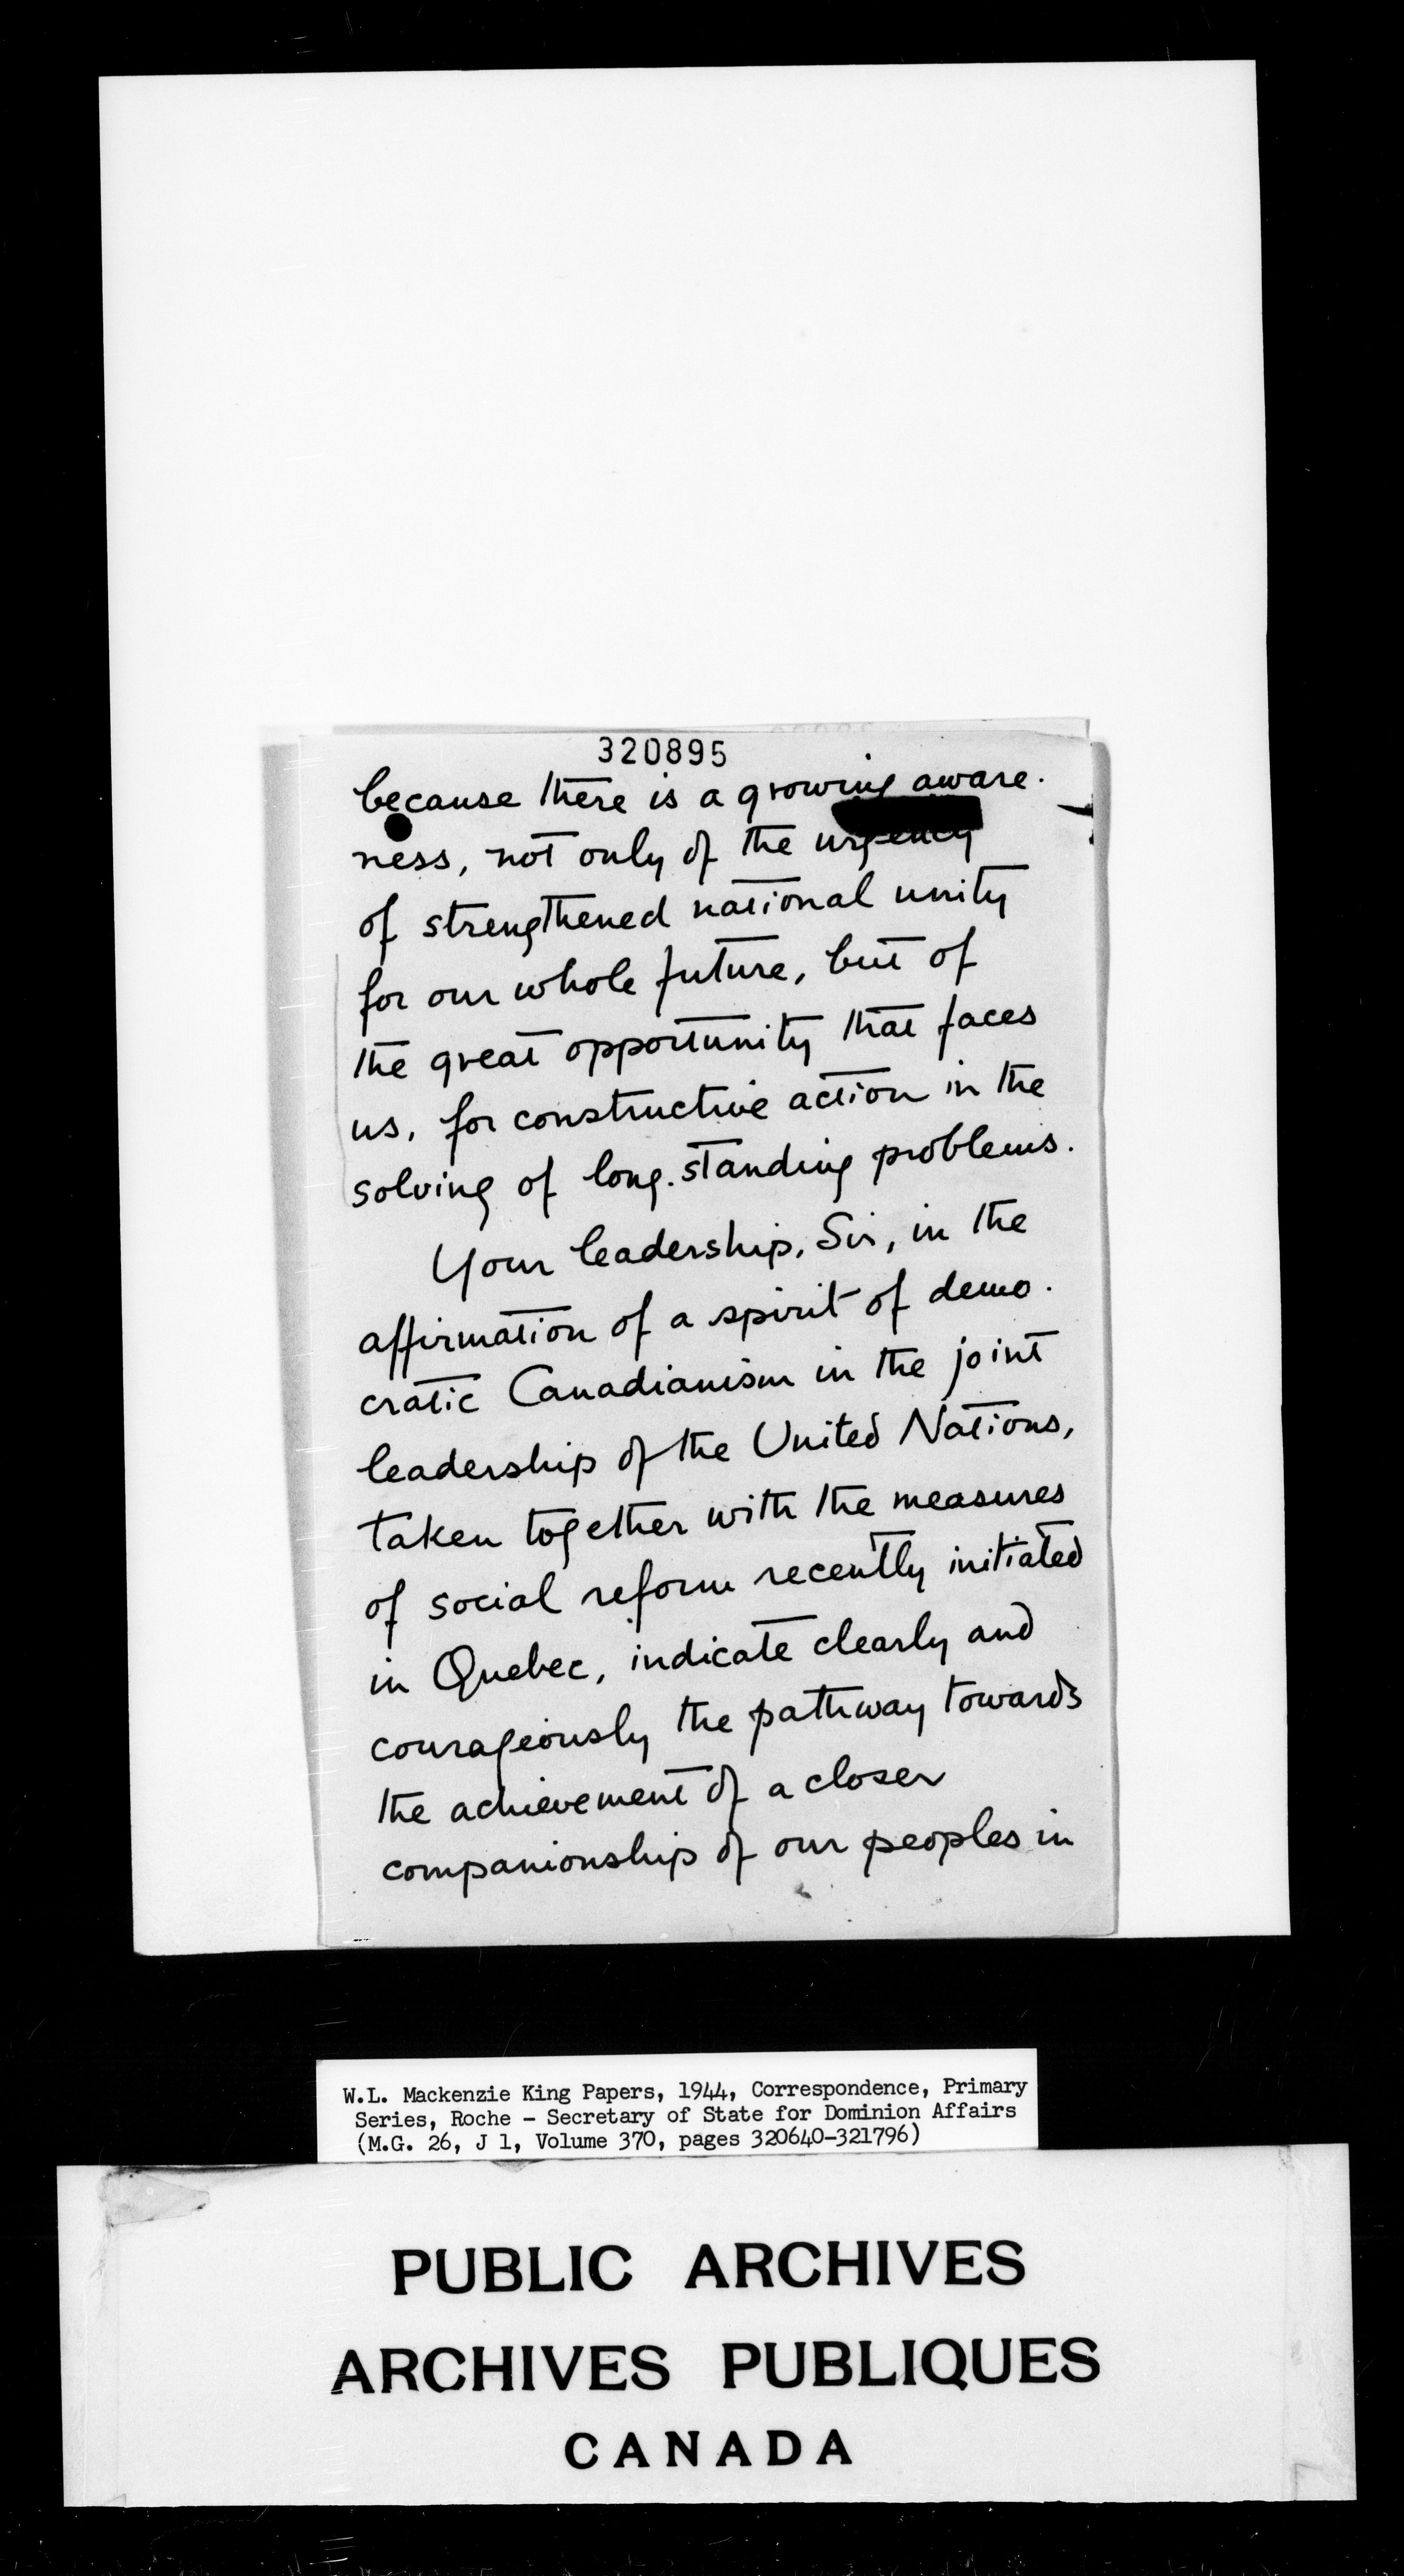 320895
because there is a growing aware-
ness, not only of the urgency
of strengthened national unity
for our whole future, but of
the great opportunity that faces
us, for constructive action in the
solving of long-standing problems.
Your leadership, Sir, in the
affirmation of a spirit of demo-
cratic Canadianism in the joint
leadership of the United Nations,
taken together with the measures
of social reform recently initiated
in Quebec, indicate clearly and
courageously the pathway towards
the achievement of a closer
companionship of our peoples in
W.L. Mackenzie King Papers, 1944, Correspondence, Primary
Series, Roche - Secretary of State for Dominion Affairs
(M.G. 26, J 1, Volume 370, pages 320640-321796)
PUBLIC ARCHIVES
ARCHIVES PUBLIQUES
CANADA